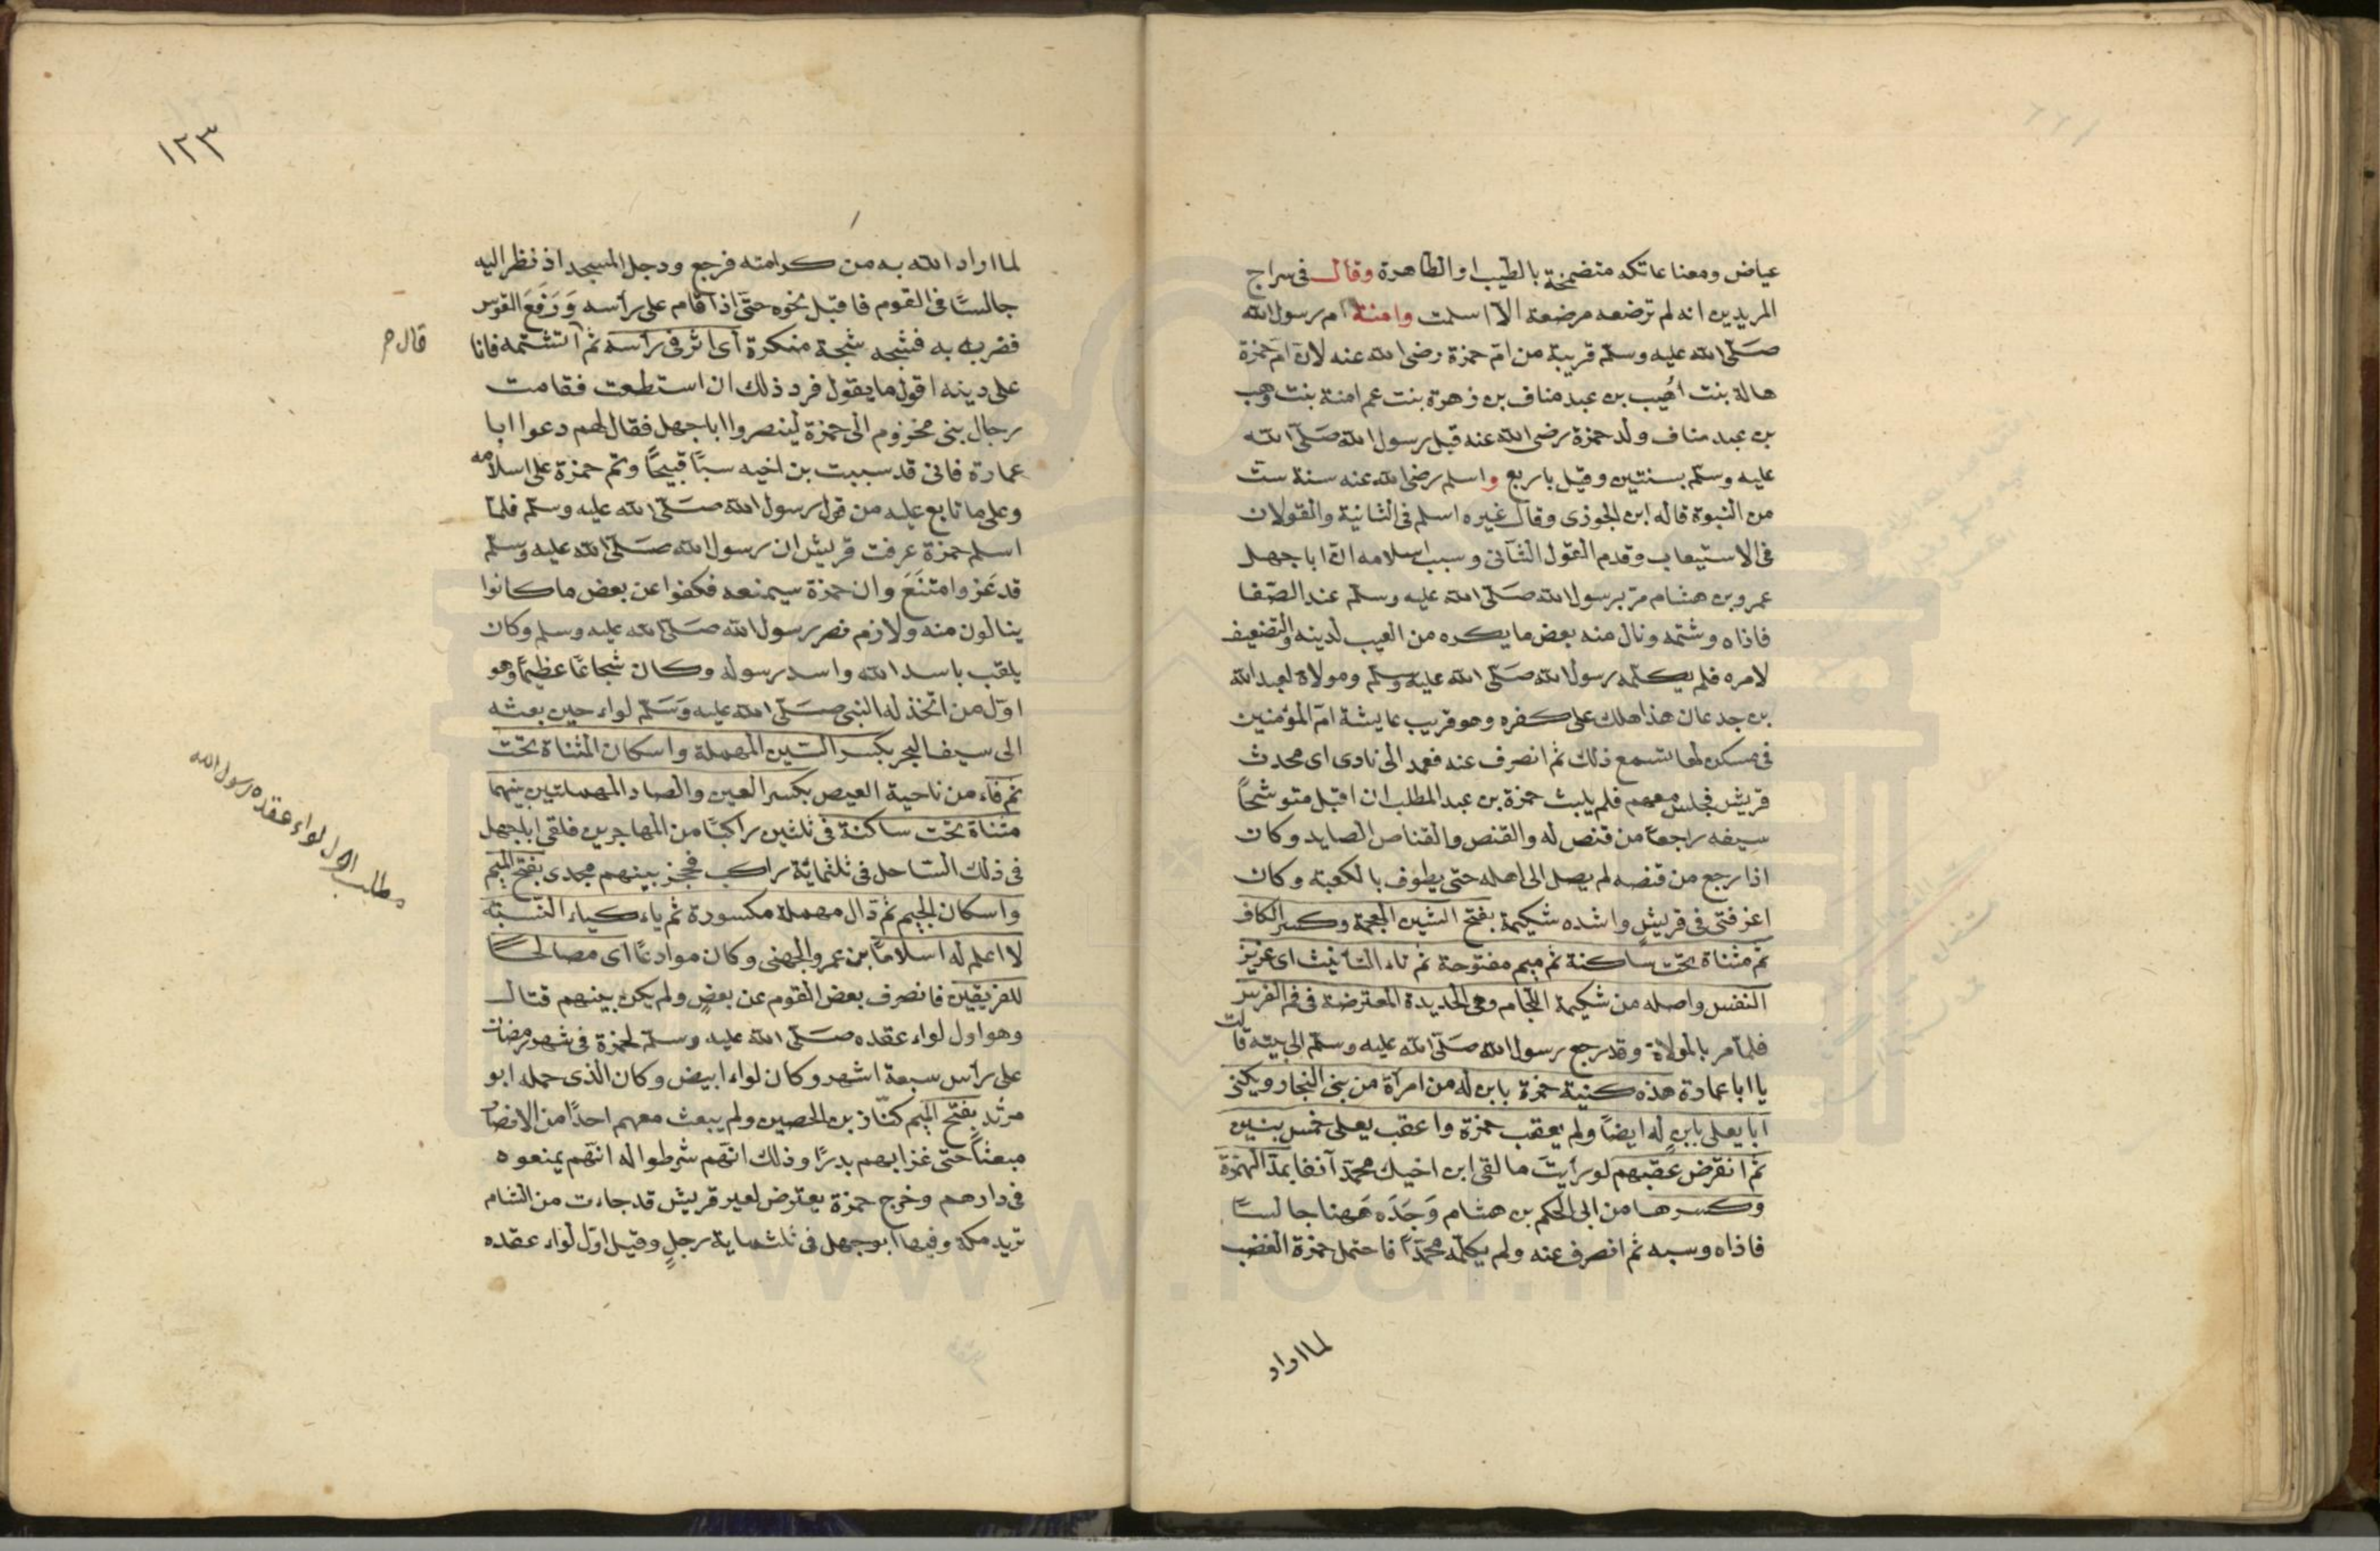 عياض ومعنا عاتكه متضمخة بالطيب او الطاهرة وقال في سراج
المريدين انه لم ترضعه مرضعة الا اسلمت وامنة ام رسول الله
صلى الله عليه وسلم قريبة من ام حمزة رضي الله عنه لان ام حمزة
هالة بنت اهيب بن عبد مناف بن زهرة بنت عم امنة بنت وهب
بن عبد مناف ولد حمزة رضي الله عنه قبل رسول الله صلى الله
عليه وسلم بسنتين وقيل باربع واسلم رضي الله عنه سنة ست
من النبوة قاله ابن الجوزى وقال غيره اسلم في الثانية والقولان
في الاستيعاب وقدم القول الثاني وسبب اسلامه ان ابا جهل
عمرو بن هشام مر برسول الله صلى الله عليه وسلم عند الصفا
فاذاه وشتمه ونال منه بعض ما يكره من العيب لدينه والتضعيف
لامره فلم يكلمه رسول الله صلى الله عليه وسلم ومولاة لعبد الله
بن جدعان هذا هلك على كفره وهو قريب عايشة ام المؤمنين
في مسكن لها تسمع ذلك ثم انصرف عنه فعمد الى نادى اى محدث
قريش فجلس معهم فلم يلبث حمزة بن عبد المطلب ان اقبل متوشحاً
سيفه راجعاً من قنص له والقنص والقناص الصايد وكان
اذا رجع من قنصه لم يصل الى اهله حتى يطوف بالكعبة وكان
اعز فتى في قريش واشده شكيمة بفتح الشين المعجمة وكسر الكاف
ثم مثناة تحت ساكنة ثم ميم مفتوحة ثم تاء التأنيث اى عزيز
النفس واصله من شكيمة اللجام وهى الحديدة المعترضة في فم الفرس
فلما مر بالمولاة وقد رجع رسول الله صلى الله عليه وسلم الى بيته قالت
يا ابا عمارة هذه كنية حمزة بابن له من امرأة من بنى النجار ويكنى
ابا يعلى بابن له ايضاً ولم يعقب حمزة واعقب يعلى خمس بنين
ثم انقرض عقبهم لو رأيت ما لقى ابن اخيك محمد آنفا بمد الهمزة
وكسرها من ابى الحكم بن هشام وَجَدَه هَهنا جالسًا
فاذاه وسبه ثم انصرف عنه ولم يكلمه محمداً فاحتمل حمزة الغضب
لما اراد
١٢٣
لما اراد الله به من كرامته فرجع ودخل المسجد اذ نظر اليه
جالسًا في القوم فاقبل نحوه حتى اذا قام على رأسه وَرَفَعَ القوس
فضربه به فشجه شجة منكرة اى اثر في رأسه ثم أتشتمه فانا
قال
على دينه اقول ما يقول فرد ذلك ان استطعت فقامت
رجال بنى مخزوم الى حمزة لينصروا ابا جهل فقال لهم دعوا ابا
عمارة فانى قد سببت بن اخيه سبًا قبيحًا وتم حمزة على اسلامه
وعلى ما تابع عليه من قول رسول الله صلى الله عليه وسلم فلما
اسلم حمزة عرفت قريش ان رسول الله صلى الله عليه وسلم
قد عَز وامتنَعَ وان حمزة سيمنعه فكفوا عن بعض ما كانوا
ينالون منه ولازم نصر رسول الله صلى الله عليه وسلم وكان
يلقب باسد الله واسد رسوله وكان شجاعًا عظيمًا وهو
اول من اتخذ له النبي صلى الله عليه وسلم لواء حين بعثه
الى سيف البحر بكسر السين المهملة واسكان المثناة تحت
ثم فاء من ناحية العيص بكسر العين والصاد المهملتين بينهما
مثناة تحت ساكنة في ثلثين راكبًا من المهاجرين فلقى اباجهل
مطلب اول لواء عقده رسول الله
في ذلك الساحل في ثلثمائة راكب فحجز بينهم مجدى بفتح الميم
واسكان الجيم ثم دال مهملة مكسورة ثم ياء كياء النسبة
لا اعلم له اسلامًا بن عمرو الجهنى وكان موادعًا اى مصالحًا
للفريقين فانصرف بعض القوم عن بعضٍ ولم يكن بينهم قتال
وهو اول لواء عقده صلى الله عليه وسلم لحمزة في شهر رمضان
على رأس سبعة اشهر وكان لواء ابيض وكان الذى حمله ابو
مرثد بفتح الميم كناز بن الحصين ولم يبعث معهم احدًا من الانصار
مبعثاً حتى غزا بهم بدرًا وذلك انهم شرطوا له انهم يمنعوه
في دارهم وخرج حمزة يعترض لعير قريش قد جاءت من الشام
تريد مكة وفيها ابو جهل في ثلثماية رجلٍ وقيل اول لواء عقده